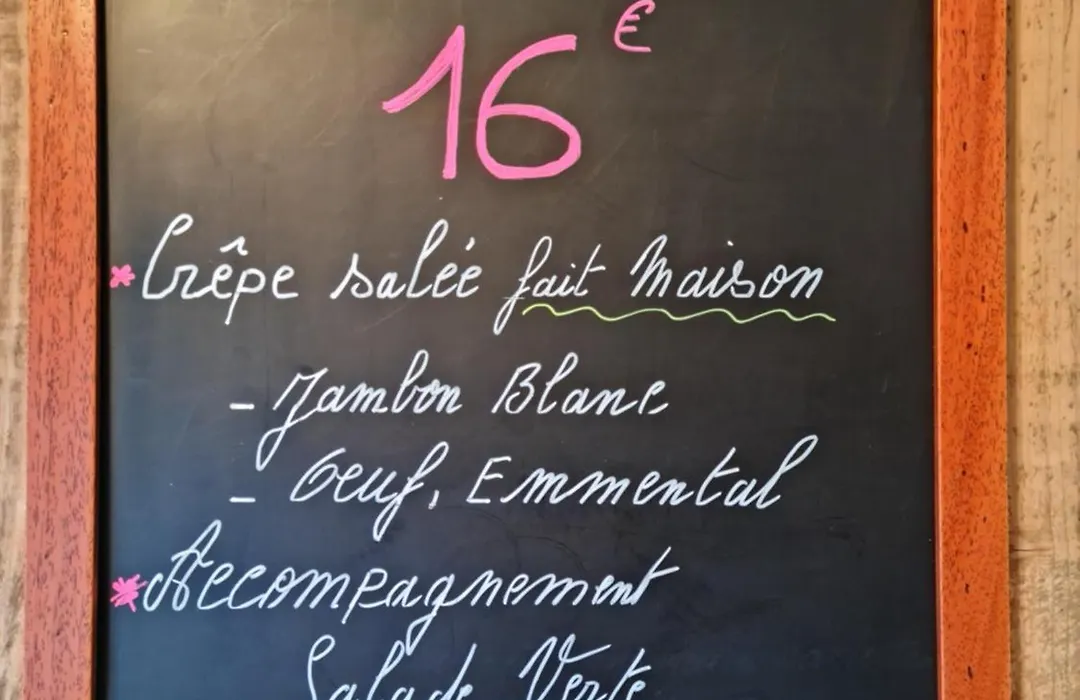 16 €
* Crêpe salée fait Maison
- Jambon Blanc
- Oeuf, Emmental
* Accompagnement
Salade Verte